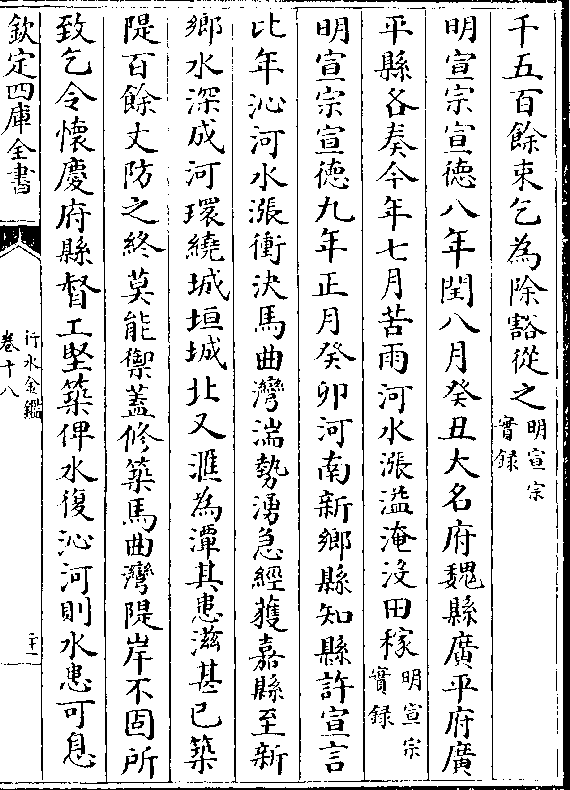 千五百餘束乞為除豁從之明宣宗實録
明宣宗宣徳八年閏八月癸丑大名府魏縣廣平府廣
平縣各奏今年七月苦雨河水漲溢淹没田稼明宣宗實録
明宣宗宣徳九年正月癸卯河南新鄉縣知縣許宣言
比年沁河水漲衝決馬曲灣湍勢湧急經獲嘉縣至新
鄉水深成河環繞城垣城北又滙為潭其患滋甚已築
隄百餘丈防之終莫能禦蓋修築馬曲灣隄岸不固所
致乞令懷慶府縣督工堅築俾水復沁河則水患可息
欽定四庫全書
行水金鑑
卷十八
二十一